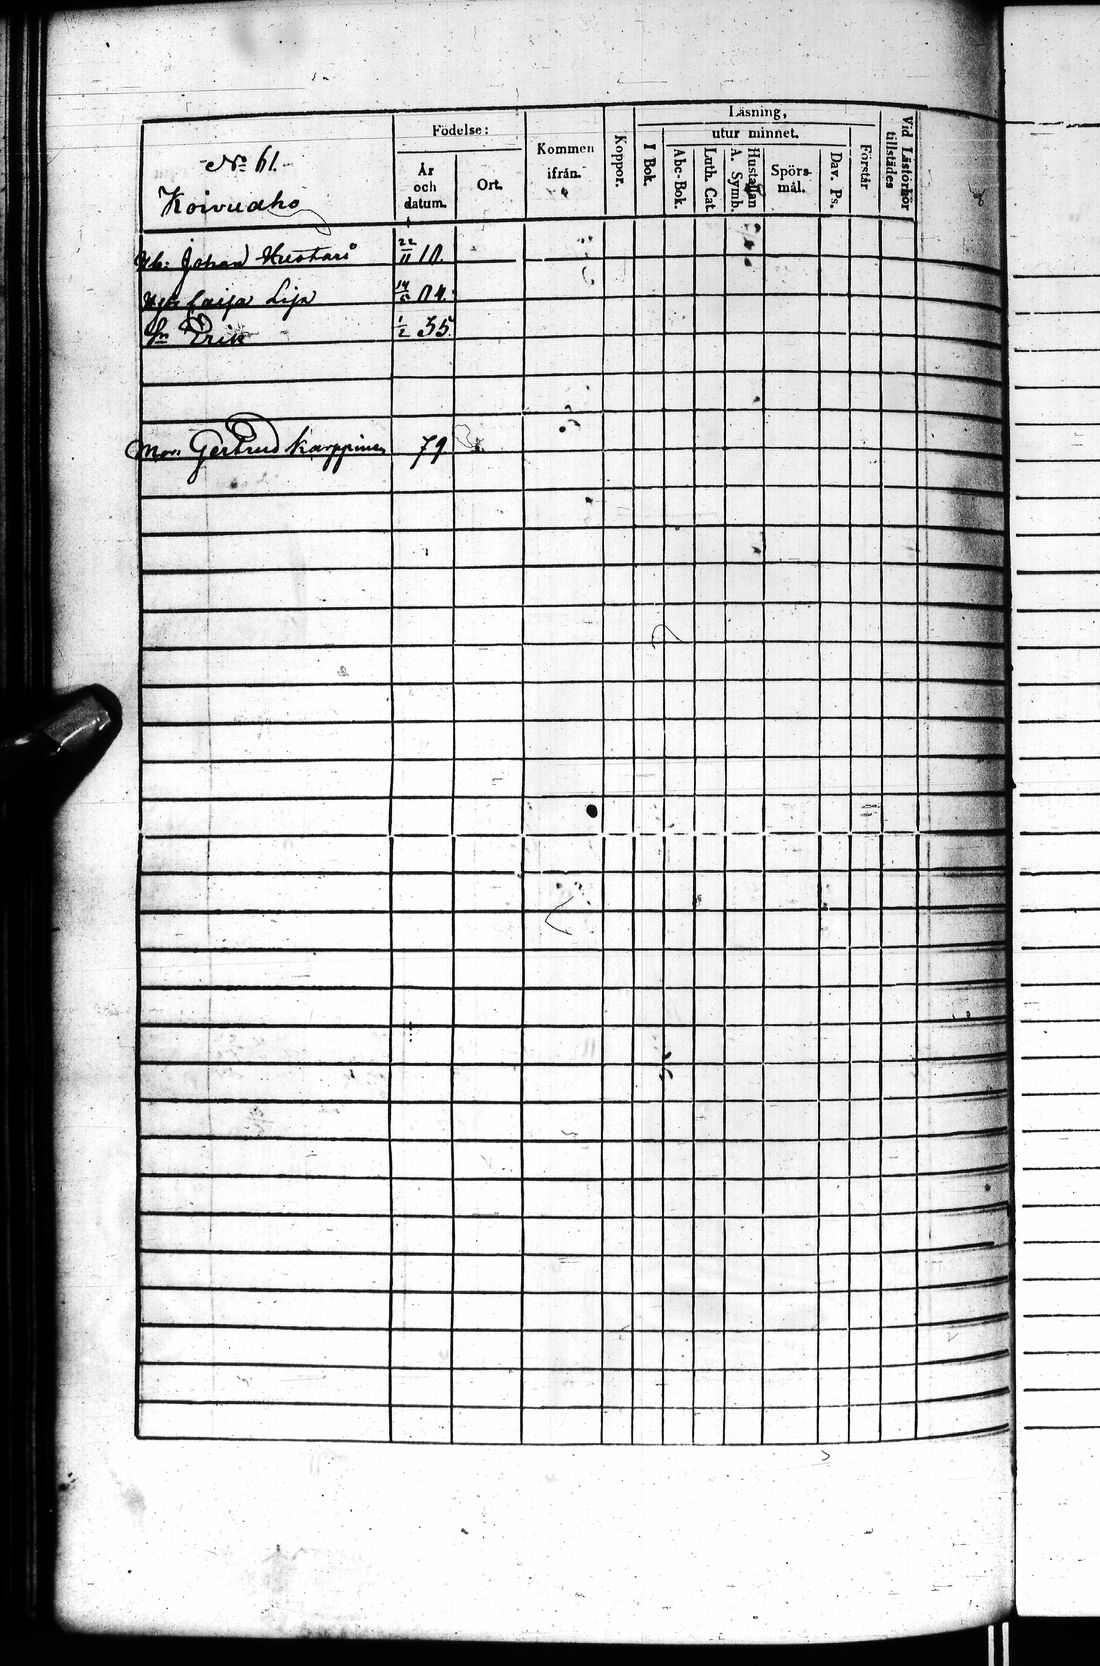 No 61.
Koivuaho
Födelse:
År och datum.
Ort.
Kommen ifrån.
Koppor.
Läsning,
I Bok.
utur minnet.
Abc-Bok.
Luth. Cat.
Hustaflan A. Symb.
Spörs-mål.
Dav. Ps.
Förstår
Vid Läsförhör tillstädes
Johan 22/11
Caija Lisa 14/5
Sn Erik 1/2 35
Mor. Gertrud Karppinen 79